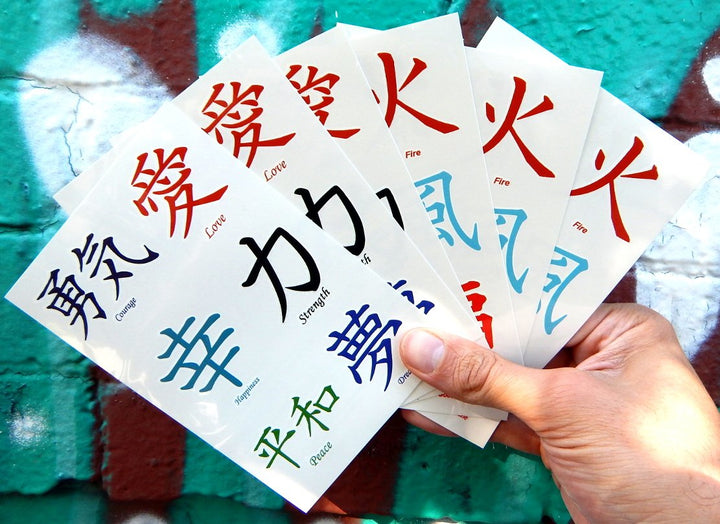 勇気
Courage
愛
Love
力
Strength
幸
Happiness
夢
平和
Peace
愛
Love
力
愛
火
Fire
風
火
Fire
風
火
Fire
風